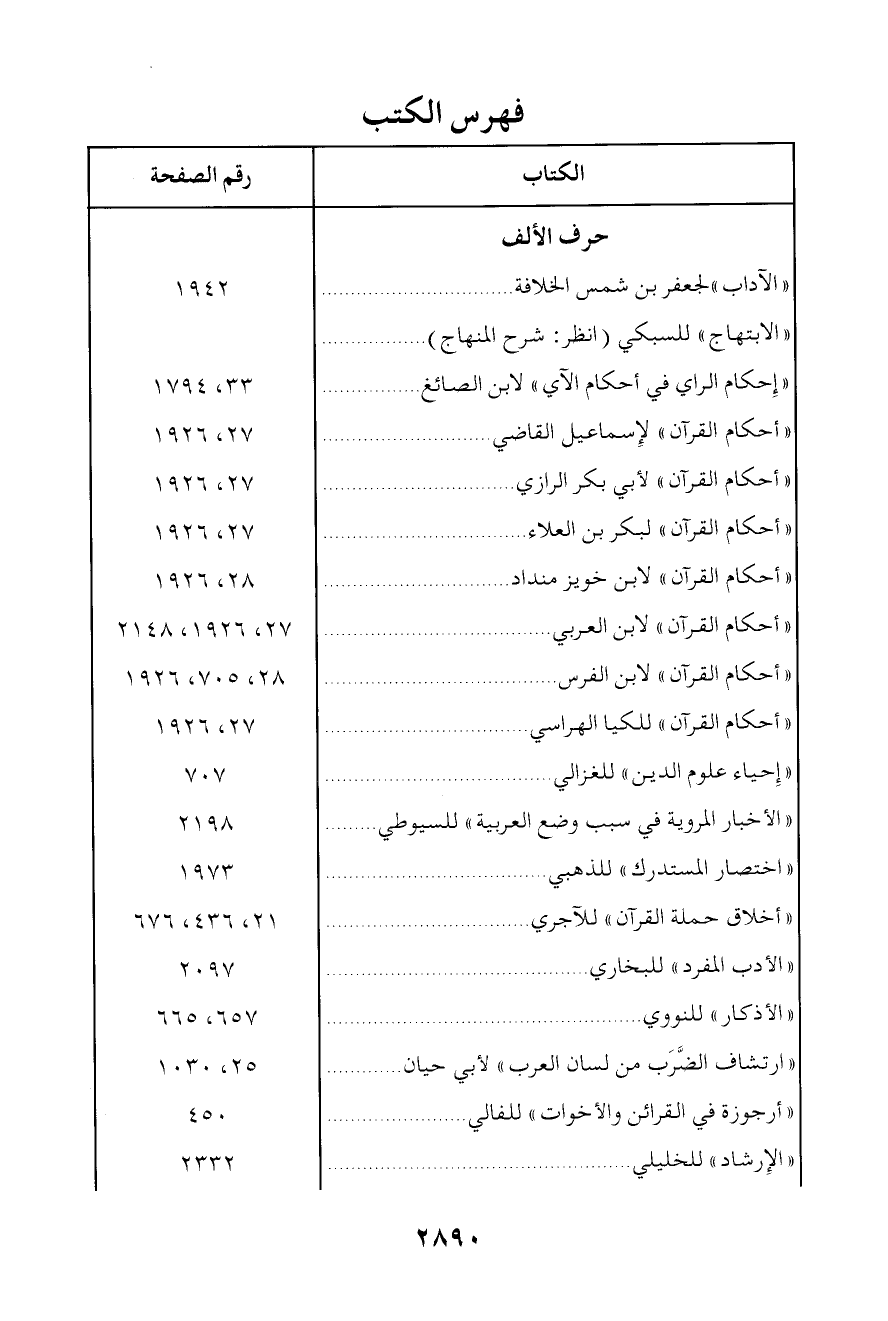 فهرس الكتب
الكتاب رقم الصفحة
حرف الألف
«الآداب» لجعفر بن شمس الخلافة ١٩٤٢
«الابتهاج» للسبكي (انظر: شرح المنهاج)
«إحكام الراي في أحكام الآي» لابن الصائغ ٣٣، ١٧٩٤
«أحكام القرآن» لإسماعيل القاضي ٢٧، ١٩٢٦
«أحكام القرآن» لأبي بكر الرازي ٢٧، ١٩٢٦
«أحكام القرآن» لبكر بن العلاء ٢٧، ١٩٢٦
«أحكام القرآن» لابن خويز منداد ٢٨، ١٩٢٦
«أحكام القرآن» لابن العربي ٢٧، ١٩٢٦، ٢١٤٨
«أحكام القرآن» لابن الفرس ٢٨، ٧٠٥، ١٩٢٦
«أحكام القرآن» للكيا الهراسي ٢٧، ١٩٢٦
«إحياء علوم الدين» للغزالي ٧٠٧
«الأخبار المروية في سبب وضع العربية» للسيوطي ٢١٩٨
«اختصار المستدرك» للذهبي ١٩٧٣
«أخلاق حملة القرآن» للآجري ٢١، ٤٣٦، ٦٧٦
«الأدب المفرد» للبخاري ٢٠٩٧
«الأذكار» للنووي ٦٥٧، ٦٦٥
«ارتشاف الضَّرَب من لسان العرب» لأبي حيان ٢٥، ١٠٣٠
«أرجوزة في القرائن والأخوات» للفالي ٤٥٠
«الإرشاد» للخليلي ٢٣٣٢
٢٨٩٠